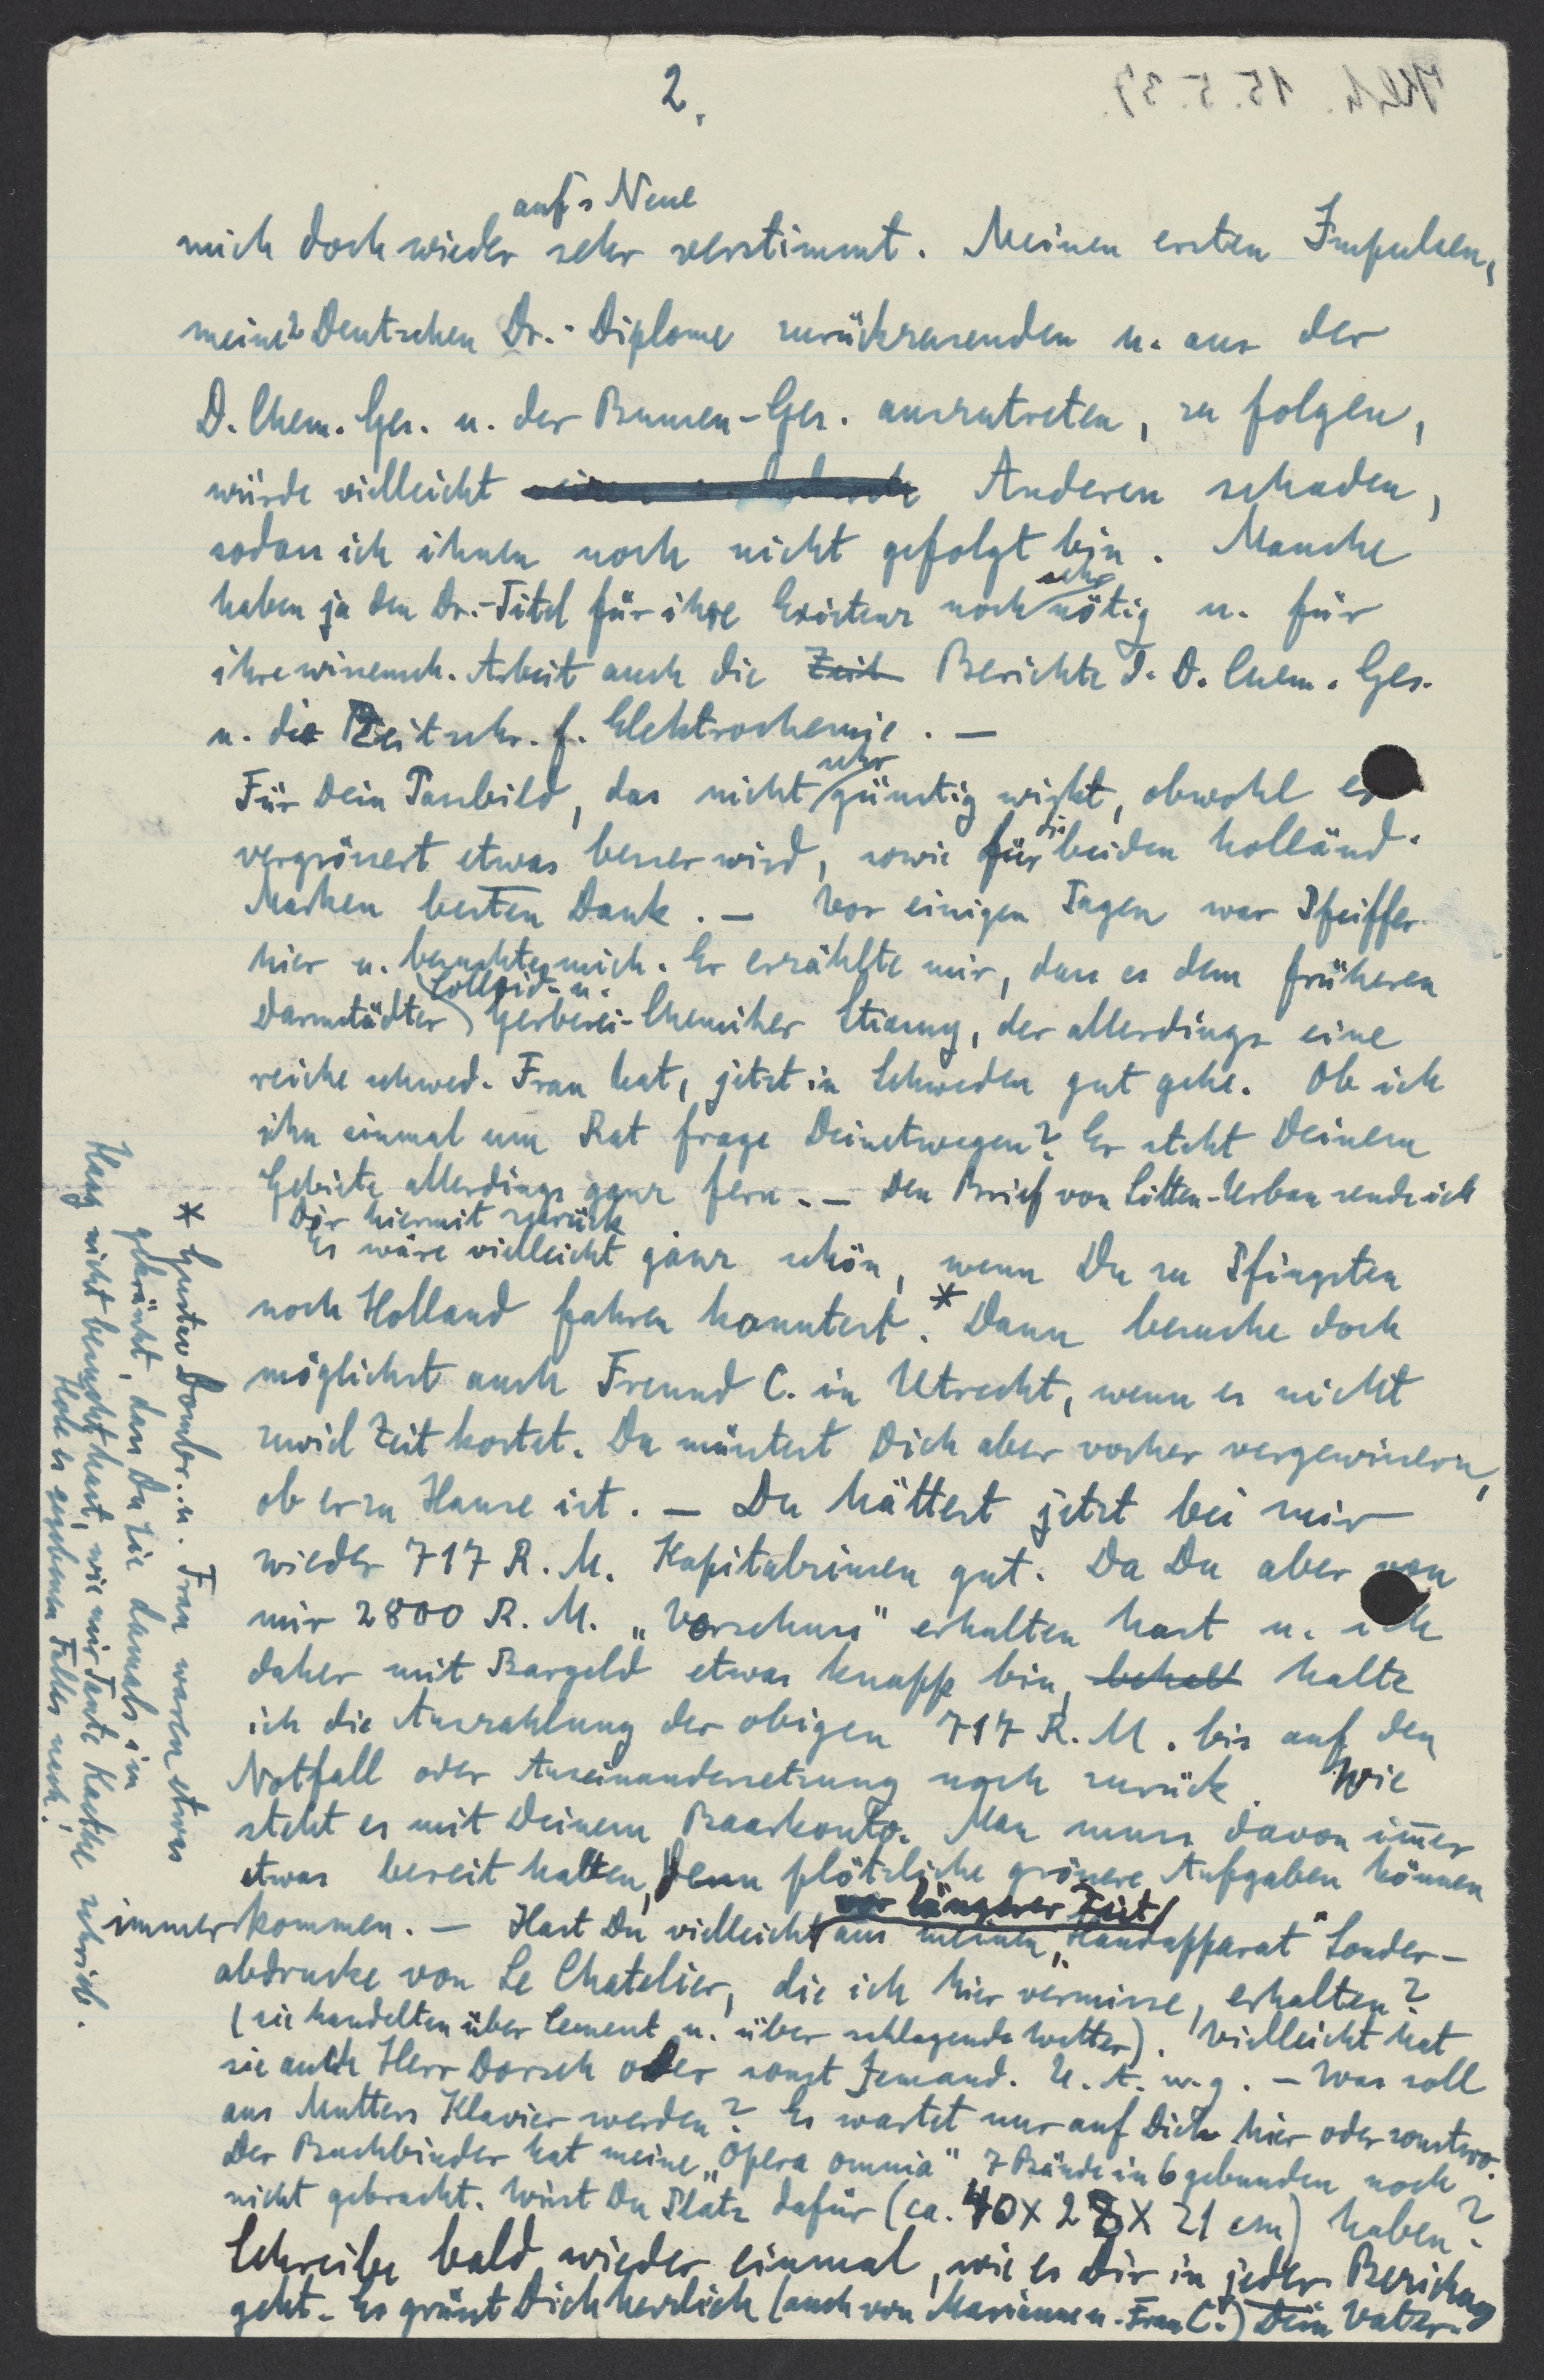 2.
auf's Neue
mich doch wieder sehr verstimmt. Meinen ersten Impulsen,
meine 2 Deutschen Dr.-Diplome zurückzusenden u. aus der
D. Chem. Ges. u. der Bunsen-Ges. auszutreten, zu folgen,
würde vielleicht Anderen schaden,
sodass ich ihnen noch nicht gefolgt bin. Manche
haben ja den Dr.-Titel für ihre Existenz noch sehr nötig u. für
ihre wissensch. Arbeit auch die Zeit Berichte d. D. Chem. Ges.
u. die Zeitschr. f. Elektrochemie. —
Für Dein Passbild, das nicht sehr günstig wirkt, obwohl es
vergrössert etwas besser wird, sowie für die beiden holländ.
Marken besten Dank. — Vor einigen Tagen war Pfeiffer
hier u. besuchte mich. Er erzählte mir, dass es dem früheren
Darmstädter Colloid- u. Gerberei-Chemiker Stiasny, der allerdings eine
reiche schwed. Frau hat, jetzt in Schweden gut gehe. Ob ich
ihn einmal um Rat frage Deinetwegen? Er steht Deinem
Gebiete allerdings ganz fern. — Den Brief von Litten-Urban sende ich
Dir hiermit zurück
Es wäre vielleicht ganz schön, wenn Du zu Pfingsten
nach Holland fahren könntest.* Dann besuche doch
möglichst auch Freund C. in Utrecht, wenn es nicht
zuviel Zeit kostet. Du müsstest Dich aber vorher vergewissern,
ob er zu Hause ist. — Du hättest jetzt bei mir
wieder 717 R. M. Kapitalzinsen gut. Da Du aber von
mir 2800 R. M. „Vorschuss" erhalten hast u. ich
daher mit Bargeld etwas knapp bin, behalt halte
ich die Auszahlung der obigen 717 R. M. bis auf den
Notfall oder Auseinandersetzung noch zurück. Wie
steht es mit Deinem Baarkonto. Man muss davon im̄er
etwas bereit halten, denn plötzliche grössere Aufgaben können
immer kommen. — Hast Du vielleicht vor längerer Zeit aus meinen „Handapparat" Sonder-
abdrucke von Le Chatelier, die ich hier vermisse, erhalten?
(sie handelten über Cement u. über schlagende Wetter). Vielleicht hat
sie auch Herr Dorsch oder sonst Jemand. U. A. w. g. — Was soll
aus Mutters Klavier werden? Es wartet nur auf Dich hier oder sonstwo.
Der Buchbinder hat meine „Opera omnia" 7 Bände in 6 gebunden noch
nicht gebracht. Wirst Du Platz dafür (ca. 40 X 28 X 21 cm) haben?
Schreibe bald wieder einmal, wie es Dir in jeder Beziehung
geht. Es grüsst Dich herzlich (auch von Marianne u. Frau C.) Dein Vater.
* Gustav Dombr. u. Frau waren etwas
gekränkt, dass Du Sie damals im
Haag nicht besucht hast, wie mir Tante Käthe schrieb.
Hole es gegebenen Falles nach!
15. 5. 37.